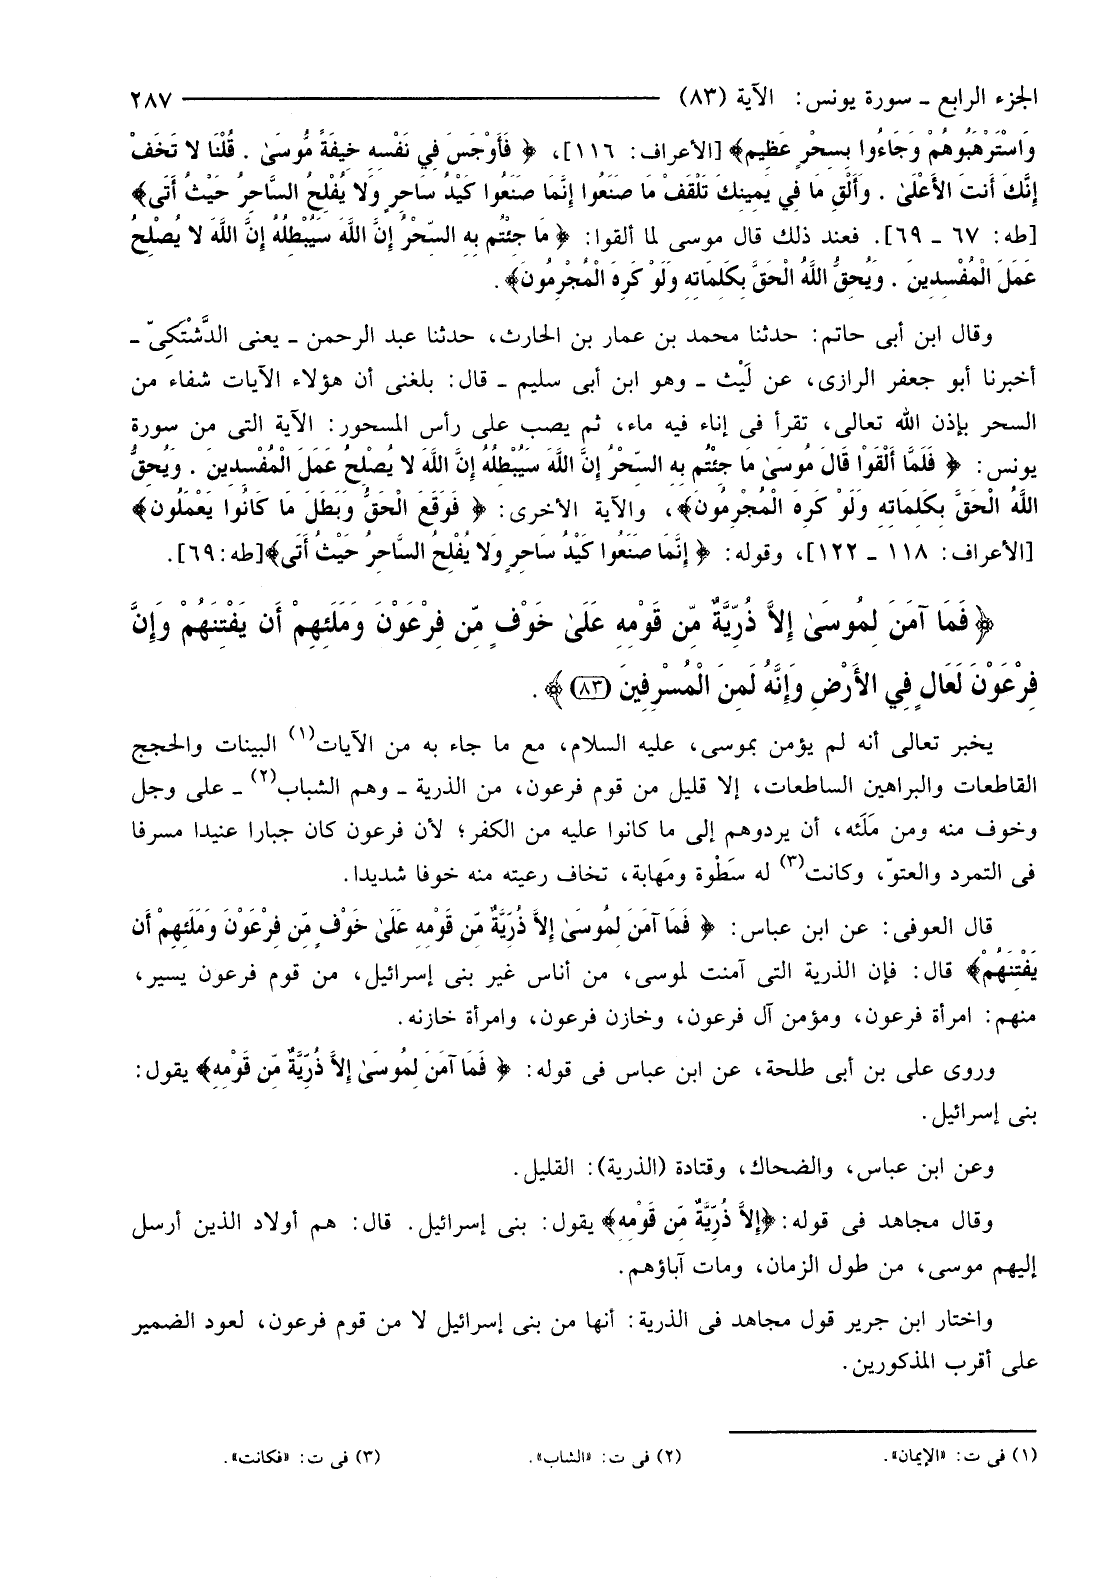 الجزء الرابع ـ سورة يونس: الآية (٨٣) ٢٨٧
وَاسْتَرْهَبُوهُمْ وَجَاءُوا بِسِحْرٍ عَظِيمٍ﴾ [الأعراف: ١١٦]، ﴿ فَأَوْجَسَ فِي نَفْسِهِ خِيفَةً مُّوسَىٰ . قُلْنَا لا تَخَفْ
إِنَّكَ أَنتَ الأَعْلَىٰ . وَأَلْقِ مَا فِي يَمِينِكَ تَلْقَفْ مَا صَنَعُوا إِنَّمَا صَنَعُوا كَيْدُ سَاحِرٍ وَلا يُفْلِحُ السَّاحِرُ حَيْثُ أَتَىٰ﴾
[طه: ٦٧ ـ ٦٩]. فعند ذلك قال موسى لما ألقوا: ﴿ مَا جِئْتُم بِهِ السِّحْرُ إِنَّ اللَّهَ سَيُبْطِلُهُ إِنَّ اللَّهَ لا يُصْلِحُ
عَمَلَ الْمُفْسِدِينَ . وَيُحِقُّ اللَّهُ الْحَقَّ بِكَلِمَاتِهِ وَلَوْ كَرِهَ الْمُجْرِمُونَ﴾.
وقال ابن أبى حاتم: حدثنا محمد بن عمار بن الحارث، حدثنا عبد الرحمن ـ يعنى الدَّشْتَكِىّ ـ
أخبرنا أبو جعفر الرازى، عن لَيْث ـ وهو ابن أبى سليم ـ قال: بلغنى أن هؤلاء الآيات شفاء من
السحر بإذن الله تعالى، تقرأ فى إناء فيه ماء، ثم يصب على رأس المسحور: الآية التى من سورة
يونس: ﴿ فَلَمَّا أَلْقَوْا قَالَ مُوسَىٰ مَا جِئْتُم بِهِ السِّحْرُ إِنَّ اللَّهَ سَيُبْطِلُهُ إِنَّ اللَّهَ لا يُصْلِحُ عَمَلَ الْمُفْسِدِينَ . وَيُحِقُّ
اللَّهُ الْحَقَّ بِكَلِمَاتِهِ وَلَوْ كَرِهَ الْمُجْرِمُونَ﴾، والآية الأخرى: ﴿ فَوَقَعَ الْحَقُّ وَبَطَلَ مَا كَانُوا يَعْمَلُونَ﴾
[الأعراف: ١١٨ ـ ١٢٢]، وقوله: ﴿ إِنَّمَا صَنَعُوا كَيْدُ سَاحِرٍ وَلا يُفْلِحُ السَّاحِرُ حَيْثُ أَتَىٰ﴾[طه:٦٩].
﴿ فَمَا آمَنَ لِمُوسَىٰ إِلاَّ ذُرِّيَّةٌ مِّن قَوْمِهِ عَلَىٰ خَوْفٍ مِّن فِرْعَوْنَ وَمَلَئِهِمْ أَن يَفْتِنَهُمْ وَإِنَّ
فِرْعَوْنَ لَعَالٍ فِي الأَرْضِ وَإِنَّهُ لَمِنَ الْمُسْرِفِينَ (٨٣) ﴾ .
يخبر تعالى أنه لم يؤمن بموسى، عليه السلام، مع ما جاء به من الآيات(١) البينات والحجج
القاطعات والبراهين الساطعات، إلا قليل من قوم فرعون، من الذرية ـ وهم الشباب(٢) ـ على وجل
وخوف منه ومن مَلَئه، أن يردوهم إلى ما كانوا عليه من الكفر؛ لأن فرعون كان جبارا عنيدا مسرفا
فى التمرد والعتوّ، وكانت(٣) له سَطْوة ومَهابة، تخاف رعيته منه خوفا شديدا.
قال العوفى: عن ابن عباس: ﴿ فَمَا آمَنَ لِمُوسَىٰ إِلاَّ ذُرِّيَّةٌ مِّن قَوْمِهِ عَلَىٰ خَوْفٍ مِّن فِرْعَوْنَ وَمَلَئِهِمْ أَن
يَفْتِنَهُمْ﴾ قال: فإن الذرية التى آمنت لموسى، من أناس غير بنى إسرائيل، من قوم فرعون يسير،
منهم: امرأة فرعون، ومؤمن آل فرعون، وخازن فرعون، وامرأة خازنه.
وروى على بن أبى طلحة، عن ابن عباس فى قوله: ﴿ فَمَا آمَنَ لِمُوسَىٰ إِلاَّ ذُرِّيَّةٌ مِّن قَوْمِهِ﴾ يقول:
بنى إسرائيل.
وعن ابن عباس، والضحاك، وقتادة (الذرية): القليل.
وقال مجاهد فى قوله: ﴿إِلاَّ ذُرِّيَّةٌ مِّن قَوْمِهِ﴾ يقول: بنى إسرائيل. قال: هم أولاد الذين أرسل
إليهم موسى، من طول الزمان، ومات آباؤهم.
واختار ابن جرير قول مجاهد فى الذرية: أنها من بنى إسرائيل لا من قوم فرعون، لعود الضمير
على أقرب المذكورين.
(١) فى ت: «الإيمان». (٢) فى ت: «الشاب». (٣) فى ت: «فكانت».